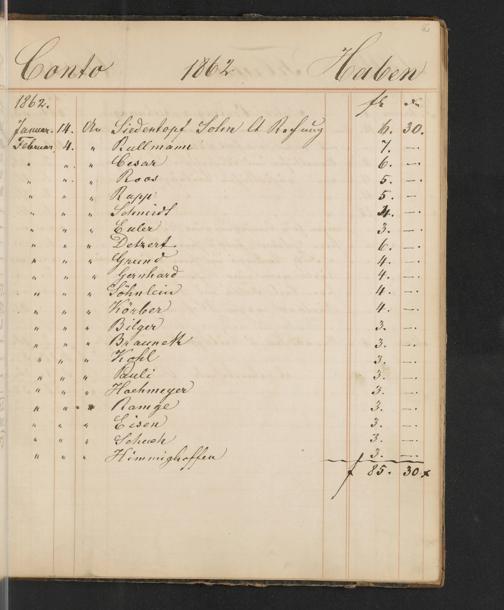 Conto 1862 Haben
1862. fr x.
Januar. 14. An Siedentopf Sohn lt Rechnug 6. 30.
Februar 4. " Bullmann 7. —
" " " Cesar 6. — .
" " " Roos 5. — .
" " " Rapp 5. —
" " " Schmidt 4. — .
" " " Euler 3. — .
" " " Detzert 6. — .
" " " Grund 4. — .
" " " Gernhard 4. — .
" " " Söhnlein 4. — .
" " " Körber 4. — .
" " " Bilger 3. — .
" " " Brauneck 3. — .
" " " Kohl 3. — .
" " " Pauli 3. — .
" " " Hachmeyer 3. — .
" " " Ramge 3. — .
" " " Eisen 3. — .
" " " Schuch 3. — .
" " " Himmighoffen 3. — .
f 85. 30 x